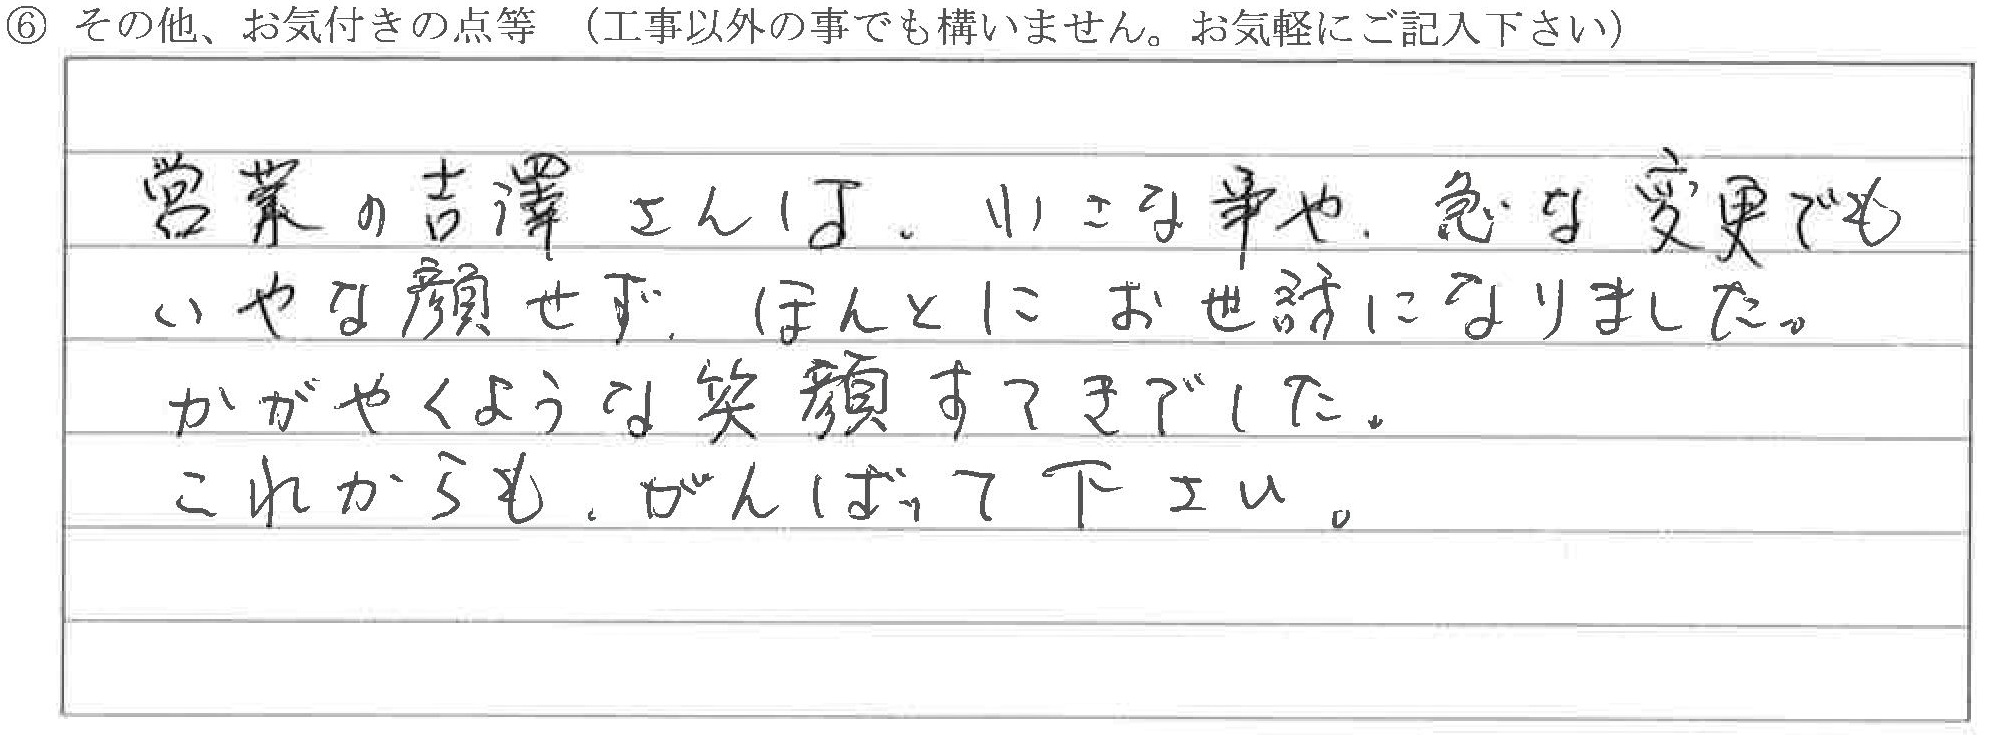 ⑥ その他、お気付きの点等 （工事以外の事でも構いません。お気軽にご記入下さい）
営業の吉澤さんは、小さな事や、急な変更でも
いやな顔せず、ほんとに お世話になりました。
かがやくような笑顔すてきでした。
これからも、がんばって下さい。